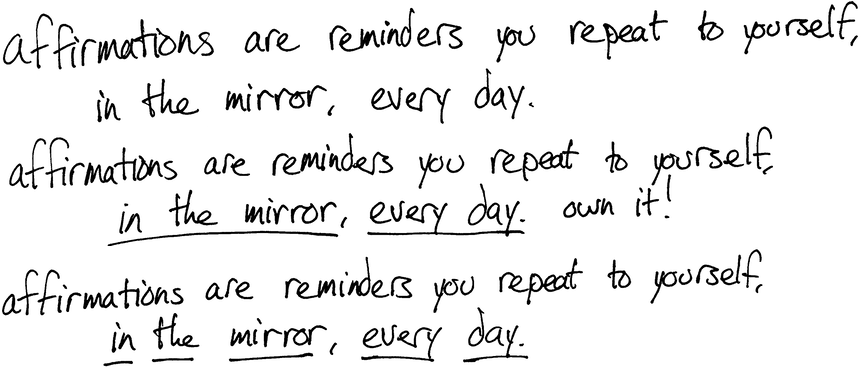 affirmations are reminders you repeat to yourself,
in the mirror, every day.
affirmations are reminders you repeat to yourself,
in the mirror, every day. own it!
affirmations are reminders you repeat to yourself,
in the mirror, every day.